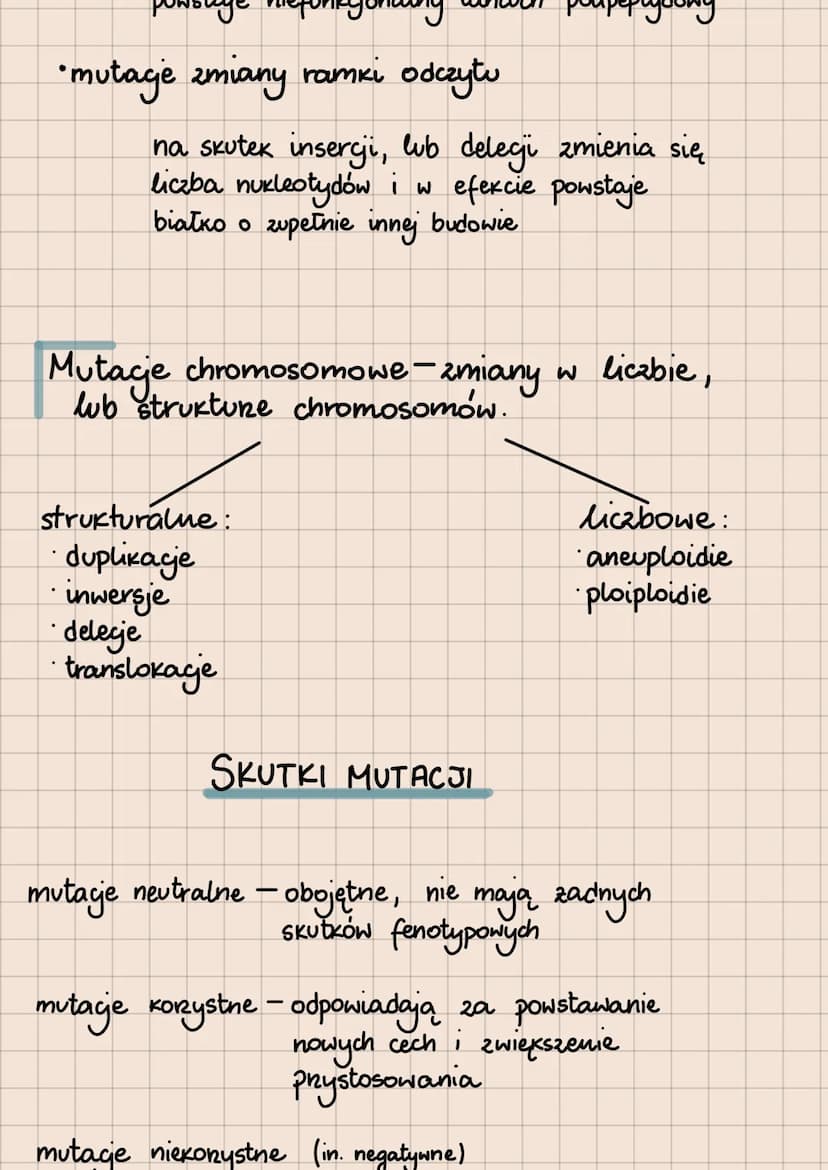 powstaje niefunkcjonalny łańcuch polipeptydowy
•mutacje zmiany ramki odczytu
na skutek insercji, lub delecji zmienia się
liczba nukleotydów i w efekcie powstaje
białko o zupełnie innej budowie
Mutacje chromosomowe – zmiany w liczbie,
lub strukturze chromosomów.
strukturalne:
· duplikacje
· inwersje
· delecje
· translokacje
liczbowe:
· aneuploidie
· ploiploidie
SKUTKI MUTACJI
mutacje neutralne – obojętne, nie mają żadnych
skutków fenotypowych
mutacje korzystne – odpowiadają za powstawanie
nowych cech i zwiększenie
przystosowania
mutacje niekorzystne (in. negatywne)